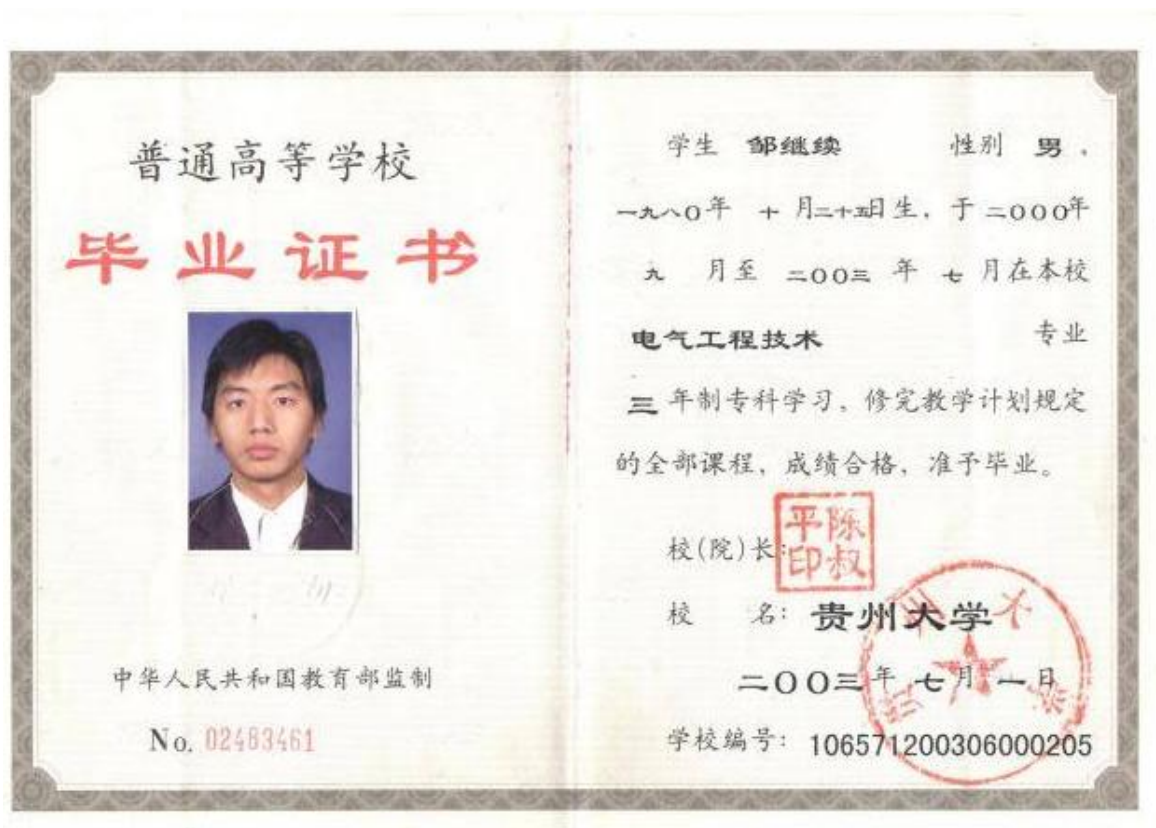 普通高等学校
毕业证书
中华人民共和国教育部监制
No. 02483461
学生 邹继续 性别 男，
一九八〇年 十 月二十五日生，于二〇〇〇年
九 月至 二〇〇三 年 七 月在本校
电气工程技术 专业
三 年制专科学习，修完教学计划规定
的全部课程，成绩合格，准予毕业。
校(院)长：
陈叔平印
校 名：贵州大学
二〇〇三年 七月 一日
学校编号：106571200306000205